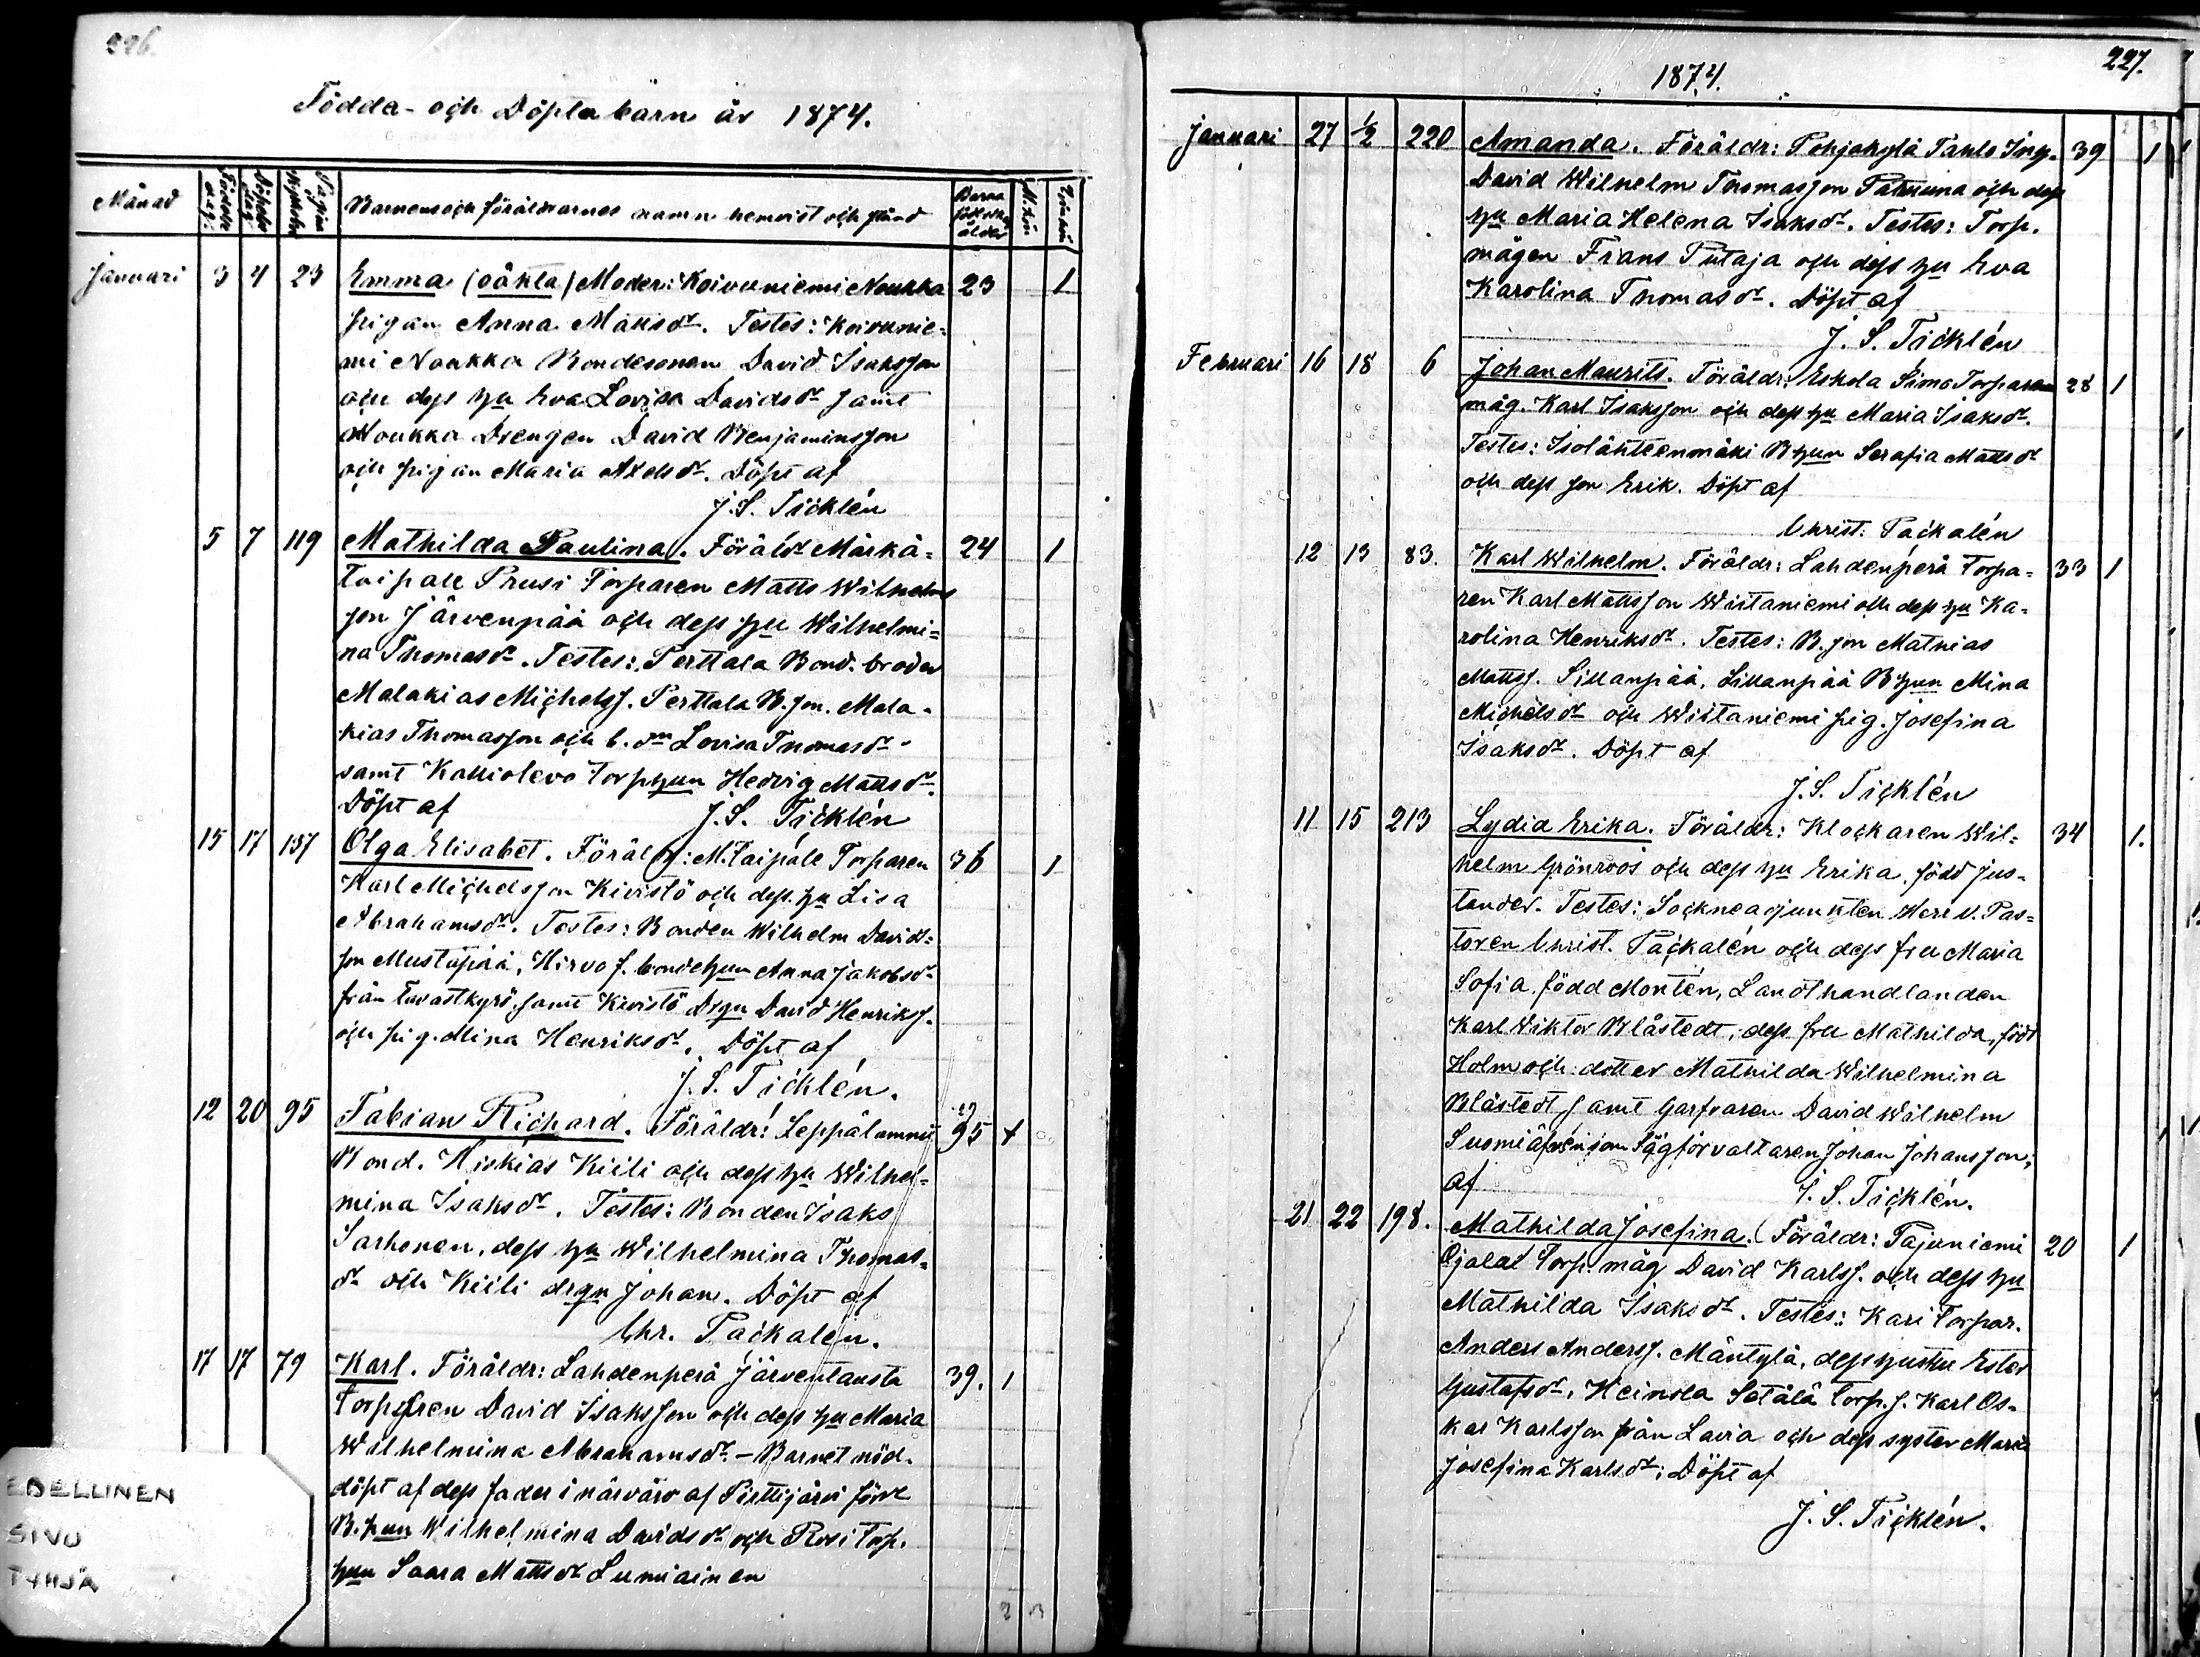 226.
Födda- och Döpta barn år 1874.
Månad
Födelse dag
Döpelse dag
Pagina
Barnens och föräldrarnes namn hemvist och stånd
Barna föderskans ålder
M.kön
Qv.kön
Januari 3 4 23 Emma (oäkta) Moder: Koivuniemi Noukka 23 1
pigan Anna Mattsdr. Testes: Koivunie=
mi Noukka Bondesonen David Isaksson
och dess hu Eva Lovisa Davidsdr samt
Noukka Drengen David Benjaminsson
och pigan Maria Axelsdr. Döpt af
J. S. Ticklén
5 7 119 Mathilda Paulina. Föräldr Märkä= 24 1
taipale Prusi Torparen Matts Wilhelms
son Järvenpää och dess hu Wilhelmi=
na Thomasdr. Testes: Perttala Bond. broder
Malakias Michelss. Perttala B. son. Mala-
kias Thomasson och b. Lovisa Thomasdr
samt Kalliolevo Torphun Hedvig Mattsdr.
Döpt af J. S. Ticklén
15 17 137 Olga Elisabet. Föräldr: M.taipale Torparen 36 1
Karl Michelsson Kivistö och dess hu Lisa
Abrahamsdr. Testes: Bonden Wilhelm David=
son Mustapää, Hirvo f. bondehun Anna Jakobsdr
från Tavastkyrö, samt Kivistö Drgn David Henrikss.
och pig. Mina Henriksdr. Döpt af
J. S. Ticklén.
12 20 95 Fabian Richard. Föräldr: Leppälammi 29 95 +
Bond. Hiskias Kiili och dess hu Wilhel=
mina Isaksdr. Testes: Bonden Isaks
Sarhonen, dess hu Wilhelmina Thomas=
dr och Kiili drgn Johan. Döpt af
Chr. Päckalén.
17 17 79 Karl. Föräldr: Lahdenperä Järventausta 39. 1
Torparen David Isaksson och dess hu Maria
Wilhelmina Abrahamsdr. - Barnet nöd-
döpt af dess fader i närvaro af Pirttijärvi förre
B. hun Wilhelmina Davidsdr och Rosi Torp.
hun Saara Mattsdr Lumiainen
2 3
EDELLINEN
SIVU
TYHJÄ
227.
1874.
Januari 27 1/2 220 Amanda. Föräldr: Pohjakylä Paulo Ing. 39 1
David Wilhelm Thomasson Patruuna och dess
hu Maria Helena Isaksdr. Testes: Torp.
mågen Frans Putaja och dess hu Eva
Karolina Thomasdr. Döpt af
J. S. Ticklén
Februari 16 18 6 Johan Maurits. Föräldr: Eskola Simo Torparen 28 1
måg. Karl Isaksson och dess hu Maria Isaksdr.
Testes: Isolähteenmäki Bhun Serafia Mattsdr
och dess son Erik. Döpt af
Christ: Päckalén
12 13 83. Karl Wilhelm. Föräldr: Lahdenperä Torpa= 33 1
ren Karl Mattsson Wiitaniemi och dess hu Ka=
rolina Henriksdr. Testes: B. son Mathias
Mattss. Sillanpää, Sillanpää Bhun Mina
Michelsdr och Wiitaniemi pig. Josefina
Isaksdr. Döpt af
J. S. Ticklén
11 15 213 Lydia Erika. Föräldr: Klockaren Wil= 34 1.
helm Grönroos och dess hu Erika, född Jus=
lander. Testes: Sockneadjunkten Herr V. Pas=
toren Christ. Päckalén och dess fru Maria
Sofia född Montén, Landthandlanden
Karl Wiktor Blåstedt, dess fru Mathilda, född
Holm och dotter Mathilda Wilhelmina
Blåstedt samt Garfvaren David Wilhelm
Suomi äfvensom Sågförvaltaren Johan Johansson;
af J. S. Ticklén.
21 22 198. Mathilda Josefina. Föräldr: Pajuniemi 20 1
Ojalat Torp. måg David Karlss. och dess hu
Mathilda Isaksdr. Testes: Kari Torpar.
Anders Anderss. Mäntylä, dess hustru Ester
Gustafsdr, Heinola Satälä Torp. s. Karl Os=
kar Karlsson från Lavia och dess syster Maria
Josefina Karlsdr; Döpt af
J. S. Ticklén.